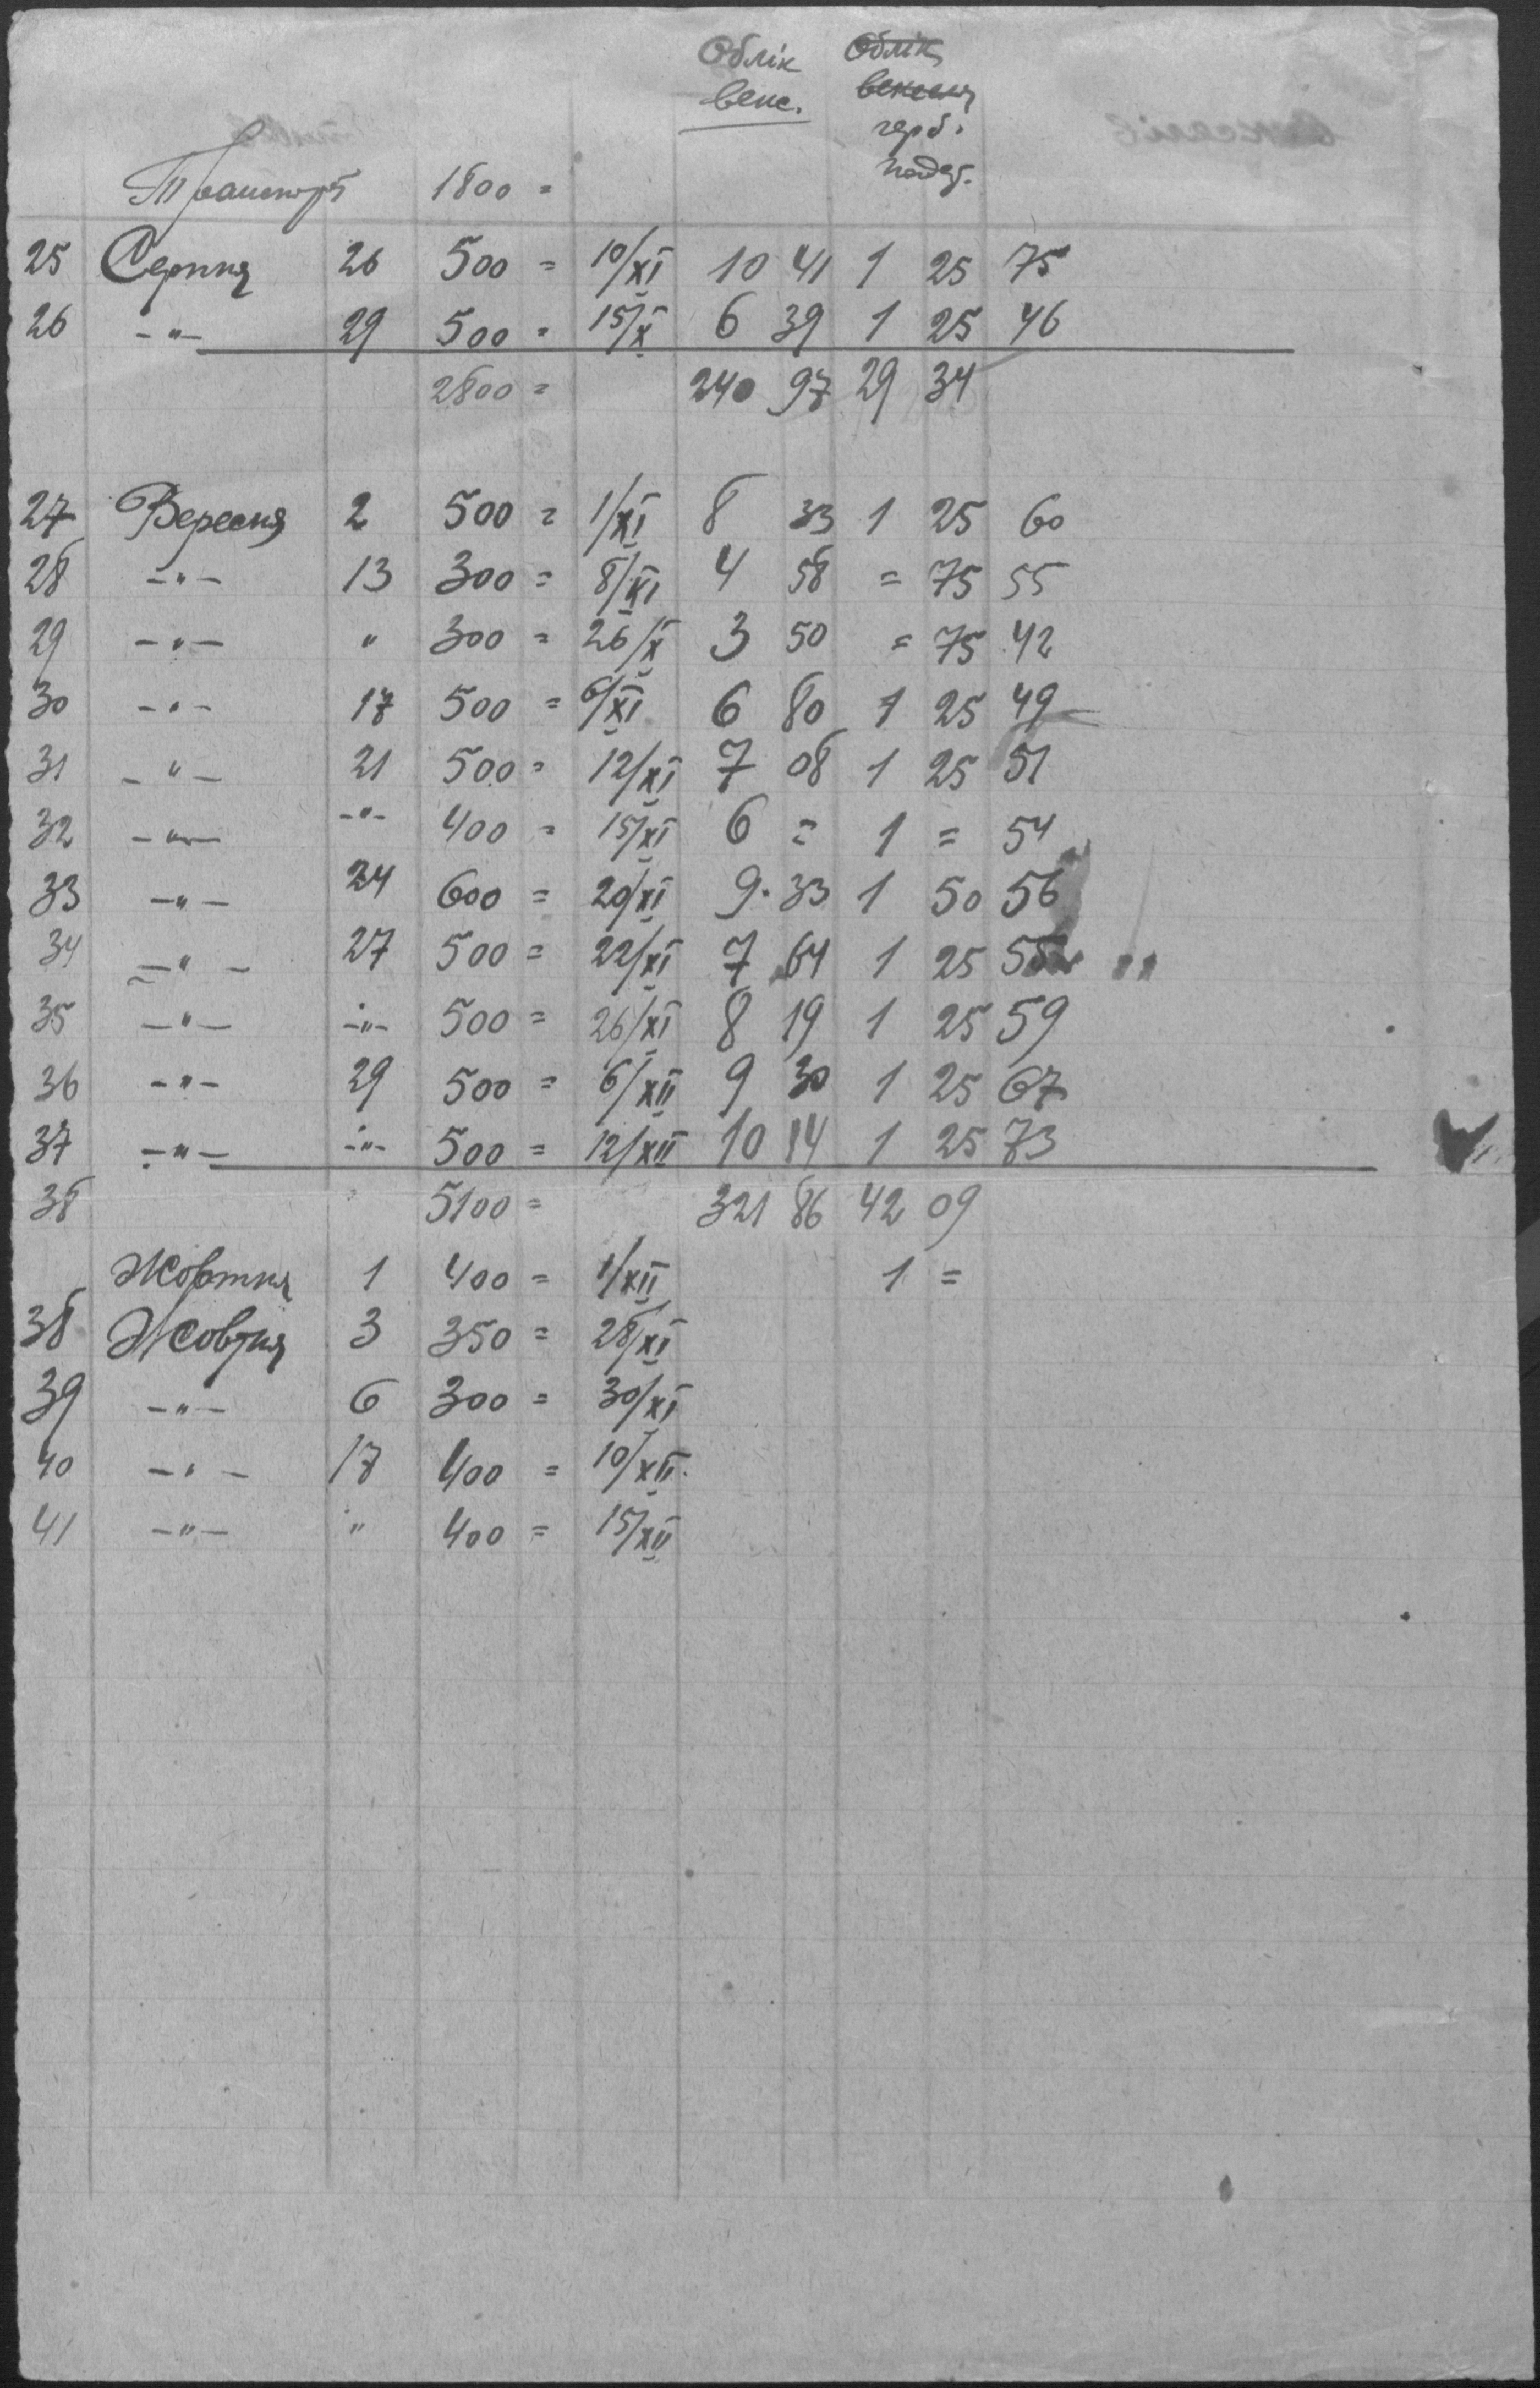 Облік Облік
векс. векселя
герб.
подат.
Транспорт 1800 =
25 Серпня 26 500 = 10/XI 10 41 1 25 75
26 -"- 29 500 = 15/X 6 39 1 25 46
2800 = 240 97 29 34
27 Вересня 2 500 = 1/XI 8 33 1 25 60
28 -"- 13 300 = 8/XI 4 58 = 75 55
29 -"- " 300 = 26/X 3 50 = 75 42
30 -"- 17 500 = 6/XI 6 80 1 25 49
31 -"- 21 500 = 12/XI 7 08 1 25 51
32 -"- -"- 400 = 15/XI 6 = 1 = 54
33 -"- 24 600 = 20/XI 9.33 1 50 56
34 -"- 27 500 = 22/XI 7 64 1 25 55
35 -"- -"- 500 = 26/XI 8 19 1 25 59
36 -"- 29 500 = 6/XII 9 30 1 25 67
37 -"- -"- 500 = 12/XII 10 14 1 25 73
38 5100 = 321 86 42 09
Жовтня 1 400 = 1/XII 1 =
38 Жовтня 3 350 = 28/XI
39 -"- 6 300 = 30/XI
40 -"- 17 400 = 10/XII.
41 -"- " 400 = 15/XII